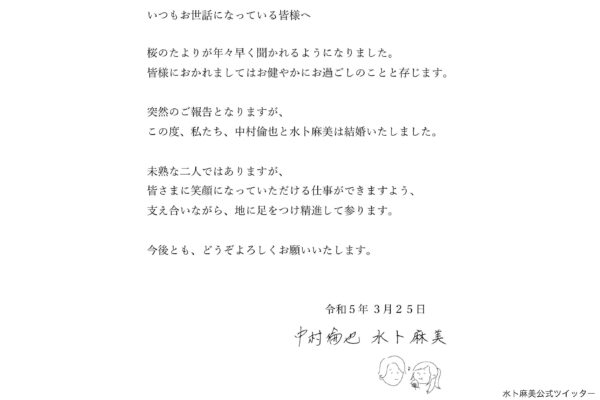 いつもお世話になっている皆様へ
桜のたよりが年々早く聞かれるようになりました。
皆様におかれましてはお健やかにお過ごしのことと存じます。
突然のご報告となりますが、
この度、私たち、中村倫也と水卜麻美は結婚いたしました。
未熟な二人ではありますが、
皆さまに笑顔になっていただける仕事ができますよう、
支え合いながら、地に足をつけ精進して参ります。
今後とも、どうぞよろしくお願いいたします。
令和５年 ３月２５日
中村倫也 水卜麻美
水卜麻美公式ツイッター